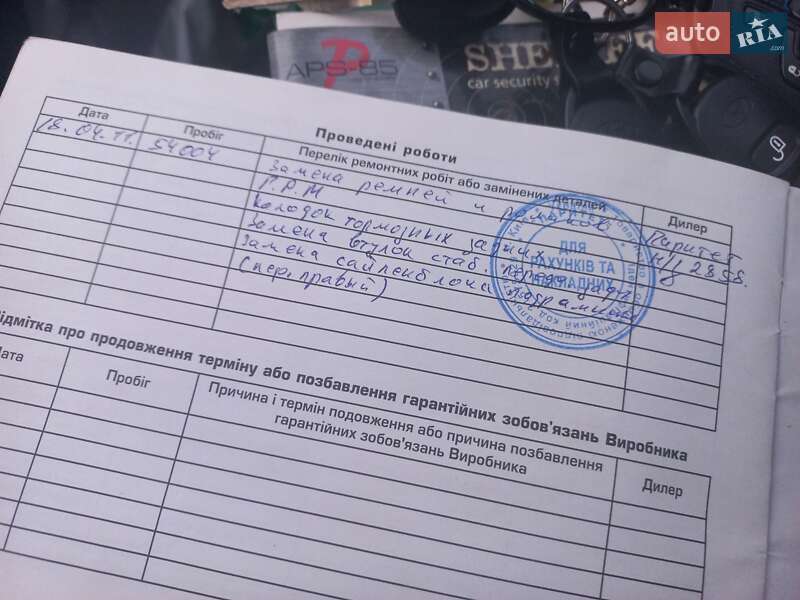 auto RIA .com
APS-85
SHE
car security s
Проведені роботи
Дата Пробіг Перелік ремонтних робіт або замінених деталей Дилер
18.04.11. 54004 Замена ремней и роликов Паритет
Г.Р.М
Колодок тормозных задних
Замена втулок стаб. перед. задн.
Замена сайленблока подрамника
(перед. правый)
ДЛЯ
РАХУНКІВ ТА
НАКЛАДНИХ
ідмітка про продовження терміну або позбавлення гарантійних зобов'язань Виробника
Дата Пробіг Причина і термін подовження або причина позбавлення гарантійних зобов'язань Виробника Дилер